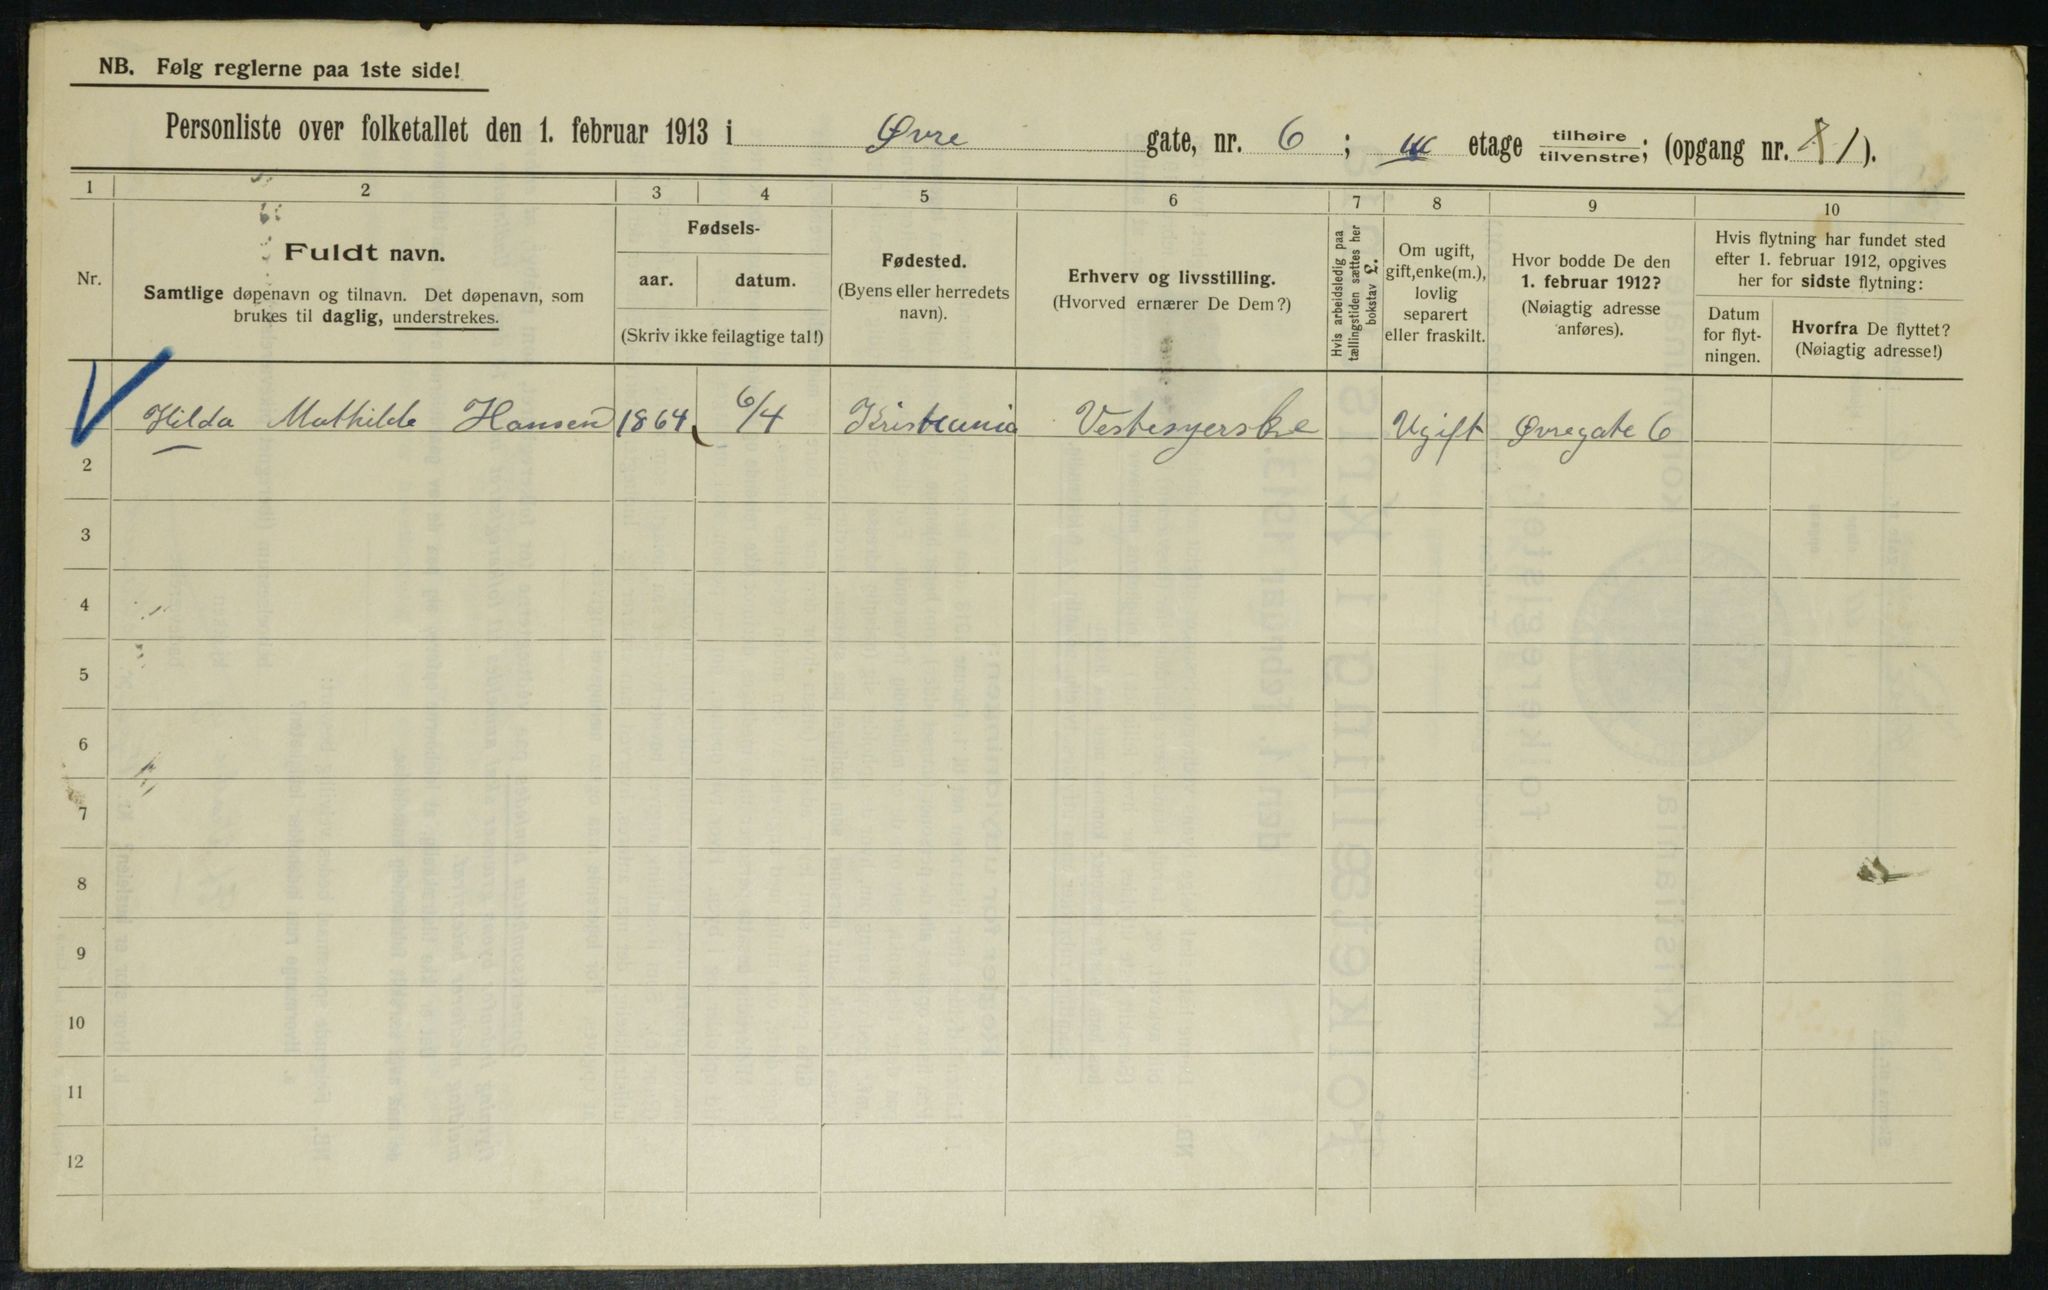 NB. Følg reglerne paa 1ste side!
Personliste over folketallet den 1. februar 1913 i Øvre gate, nr. 6 ; etage tilhøire tilvenstre; (opgang nr. 1).
1 2 3 4 5 6 7 8 9 10
Nr.
Fuldt navn.
Samtlige døpenavn og tilnavn. Det døpenavn, som
brukes til daglig, understrekes.
Fødsels-
aar. datum.
(Skriv ikke feilagtige tal!)
Fødested.
(Byens eller herredets
navn).
Erhverv og livsstilling.
(Hvorved ernærer De Dem?)
Hvis arbeidsledig paa
tællingstiden sættes her
bokstav L.
Om ugift,
gift, enke(m.),
lovlig
separert
eller fraskilt.
Hvor bodde De den
1. februar 1912?
(Nøiagtig adresse
anføres).
Hvis flytning har fundet sted
efter 1. februar 1912, opgives
her for sidste flytning:
Datum
for flyt-
ningen.
Hvorfra De flyttet?
(Nøiagtig adresse!)
Hilda Mathilde Hansen 1864 6/4 Kristiania Vestesyerske Ugift Øvregate 6
2
3
4
5
6
7
8
9
10
11
12